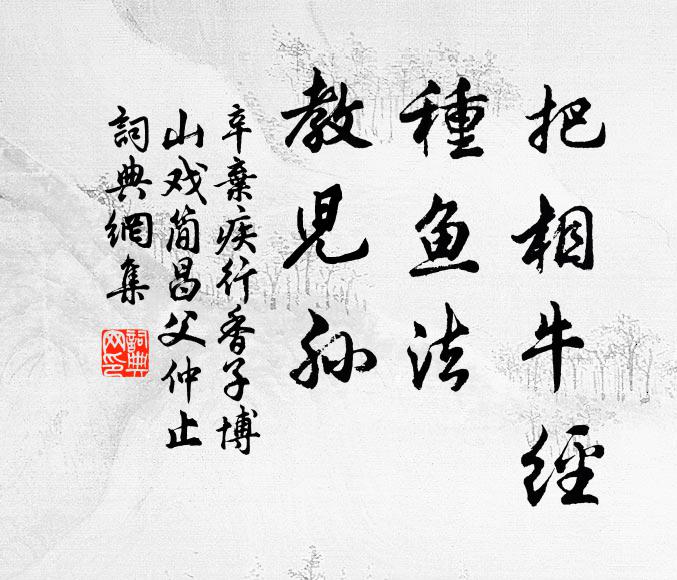 把相牛經
種魚法
教兒孫
辛棄疾行香子博
山戏简昌父仲止
詞典網集
詞典
网印